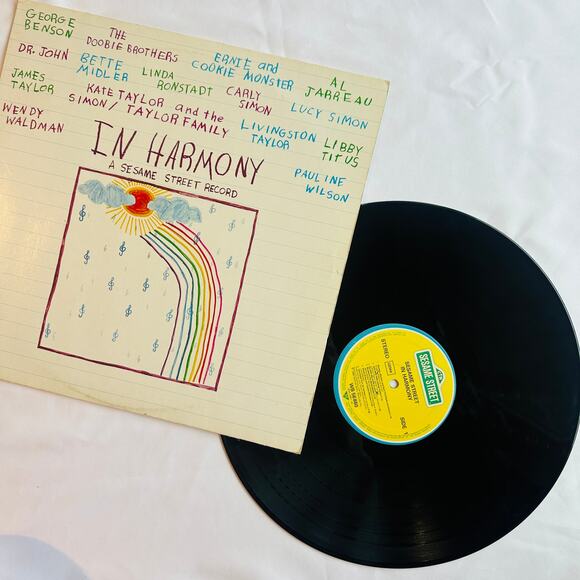 GEORGE
BENSON
THE
DOOBIE BROTHERS
ERNIE and
COOKIE MONSTER
AL
JARREAU
DR. JOHN
BETTE
MIDLER
LINDA
RONSTADT
CARLY
SIMON
LUCY SIMON
JAMES
TAYLOR
KATE TAYLOR and the
SIMON/TAYLOR FAMILY
LIVINGSTON
TAYLOR
LIBBY
TITUS
WENDY
WALDMAN
PAULINE
WILSON
IN HARMONY
A SESAME STREET RECORD
SESAME STREET
SESAME STREET
IN HARMONY
STEREO
SIDE 1